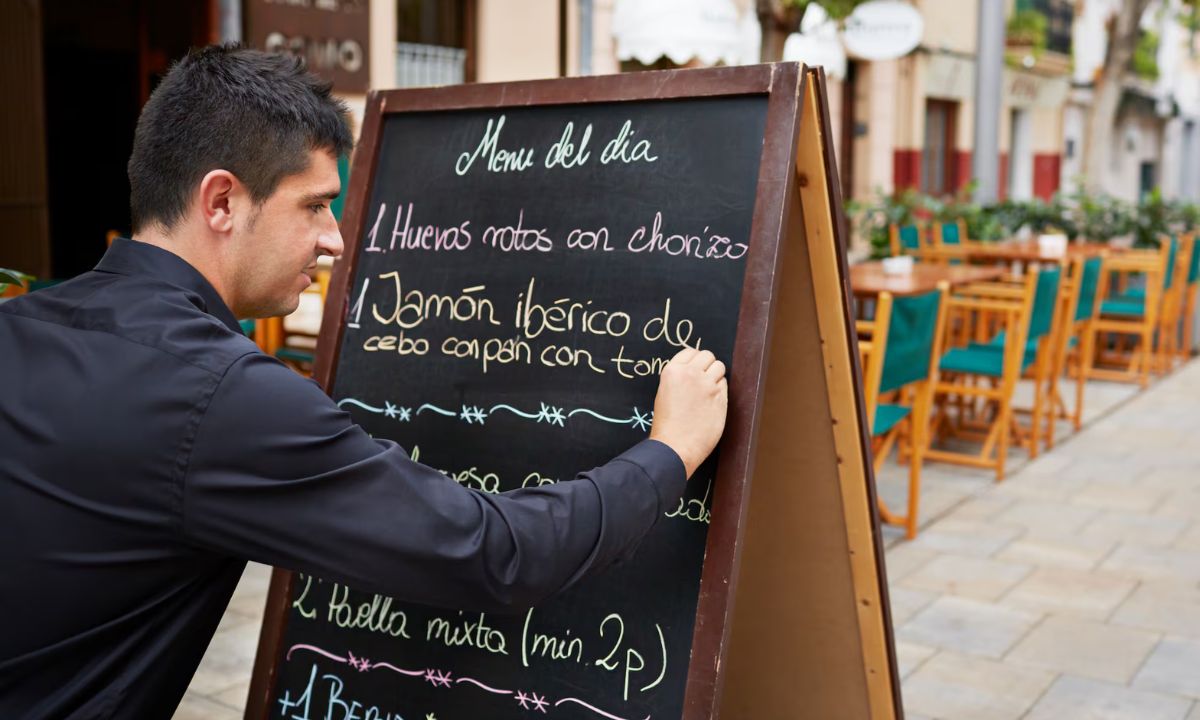 Menu del dia
1. Huevos rotos con chorizo
1 Jamón ibérico de
cebo con pan con tom
2. Paella mixta (min. 2p)
+1